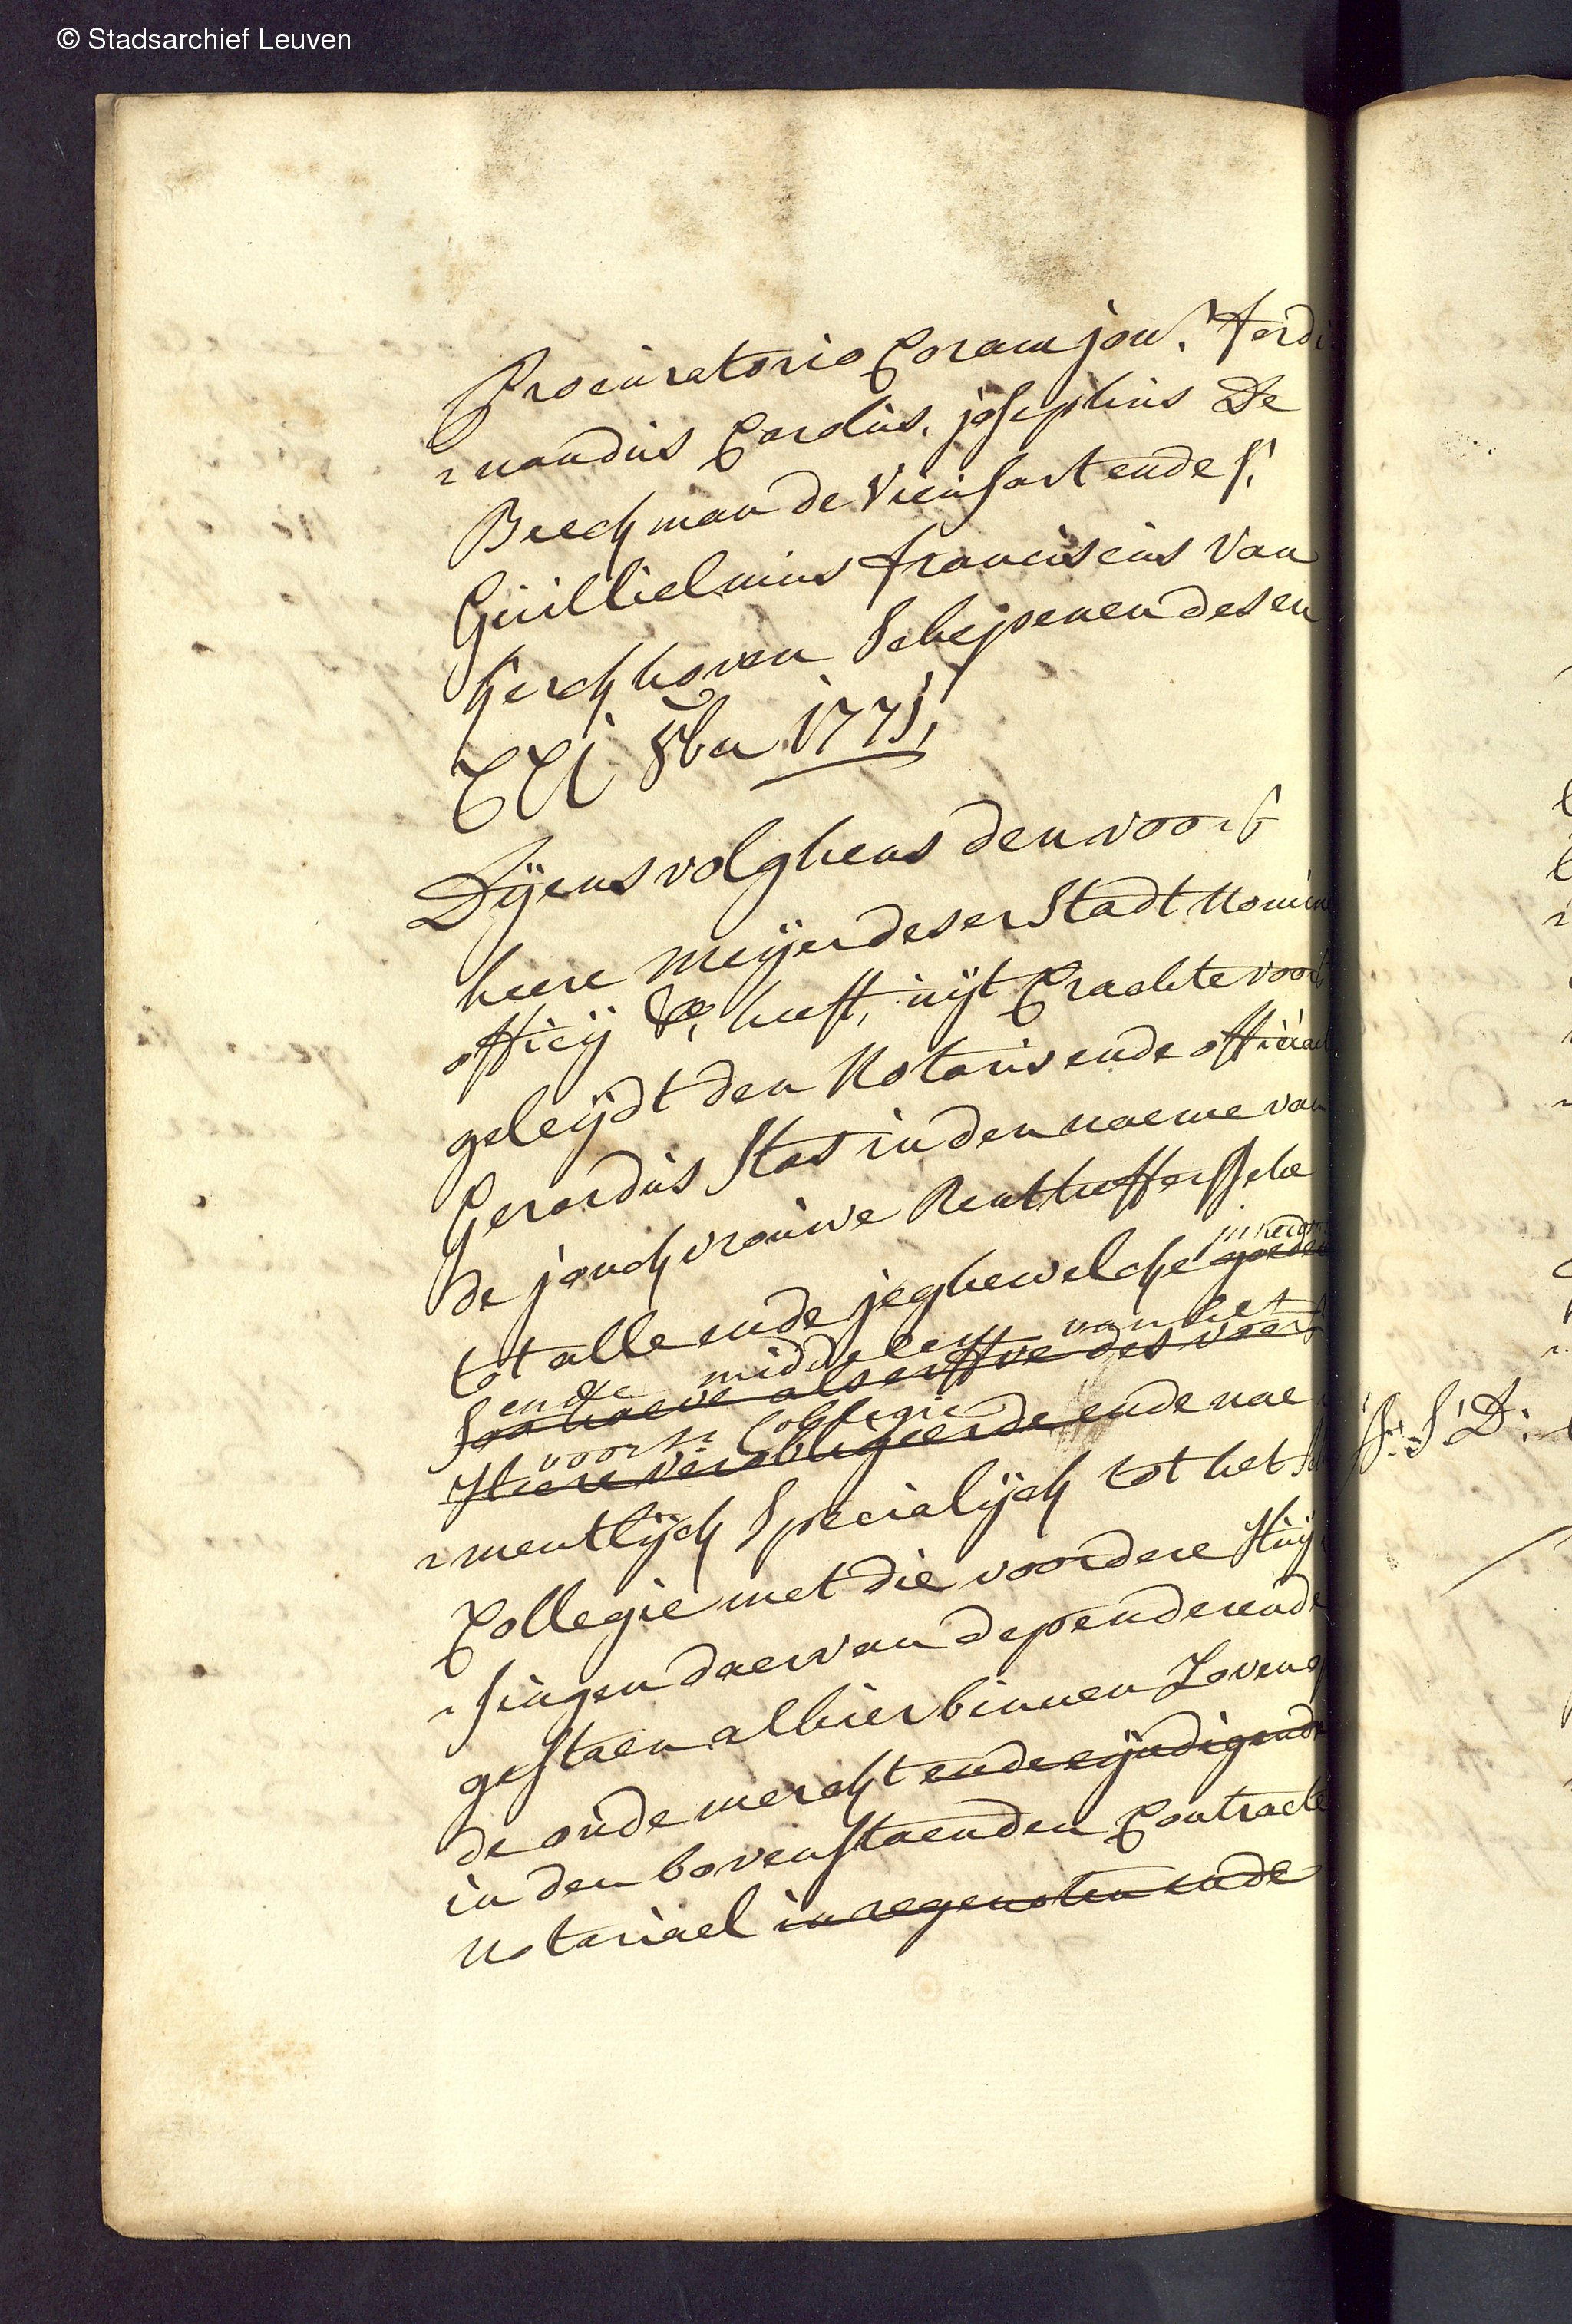 © Stadsarchief Leuven
Procuratorio Coram jon.r ferdi
nandus Carolus josephus De
Beeckman de Vieusart ende S.r
Guillielmus franciscus van
Kerckhoven Schepenen desen
XXI 8bris 1771
Dijensvolghens den voors
heere meijer deser Stadt Nomine
officij &c. heeft, uijt Crachte voors
geleijdt den Notaris ende officiael
Gerardus Stas in den naeme van
de jonckvrouwe Rentheffersche
inkom
tot alle ende jeghewelcke goeden
ende middelen van het
soo haeve als erffve des voors
voors. Collegie
Heere verobligeerde ende nae
mentlijck specialijck tot het
Collegie met die voordere Huij
singen daervan dependerende
gestaen alhier binnen Loven op
de oude merckt ende eijndigende
in den bovenstaenden Contracte
notariael in regenoten ende
S: S: D: